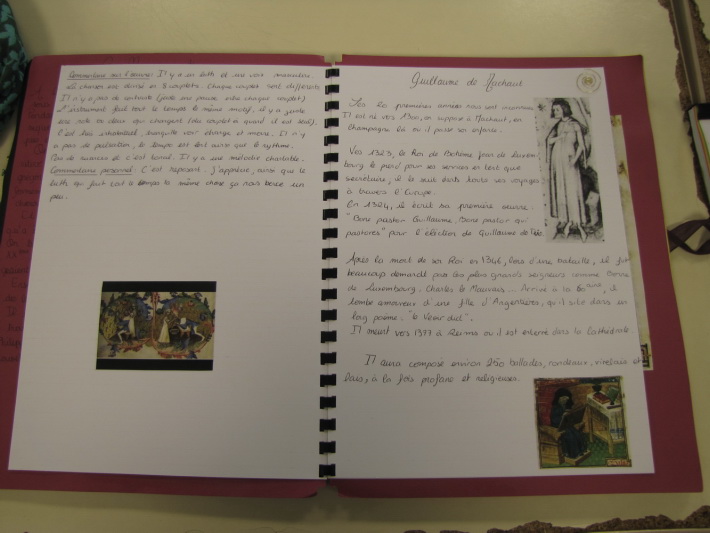 Commentaire sur l'oeuvre: Il y a un luth et une voix masculine.
La chanson est divisé en 3 couplets. Chaque couplet sont différents
Il n'y a pas de refrain (juste une pause entre chaque couplet)
L'instrument fait tout le temps le même motif, il y a juste
une note ou deux qui changent (au couplet et quand il est seul).
C'est très inhabituel, tranquille voir étrange et morne. Il n'y
a pas de pulsation, le tempo est lent ainsi que le rythme.
Pas de nuances et c'est tonal. Il y a une mélodie chantable.
Commentaire personnel: C'est reposant. J'apprécie, ainsi que le
luth qui fait tout le temps la même chose ça nous berce un
peu.
Guillaume de Machaut
Les premières années nous sont inconnues
Il est né vers 1300, on suppose à Machaut, en
champagne là où il passe son enfance.
Vers 1323, le Roi de Bohême Jean de Luxem-
bourg le prend pour ses services en tant que
secrétaire, il le suit dans toutes ses voyages
à travers l'Europe.
En 1324, il écrit sa première oeuvre:
"Bone pastor Guillaume, Bone pastor qui
pastores" pour l'élection de Guillaume de
Après la mort de son Roi en 1346, lors d'une bataille, il fut
beaucoup demandé par les plus grands seigneurs comme Bonne
de Luxembourg, Charles le Mauvais... Arrivé à la 60aine, il
tombe amoureux d'une fille d'Argentières, qu'il site dans un
long poème: "le Veoir dict".
Il meurt vers 1377 à Reims où il est enterré dans la cathédrale.
Il aura composé environ 250 ballades, rondeaux, virelais et
lais, à la fois profane et religieuses.